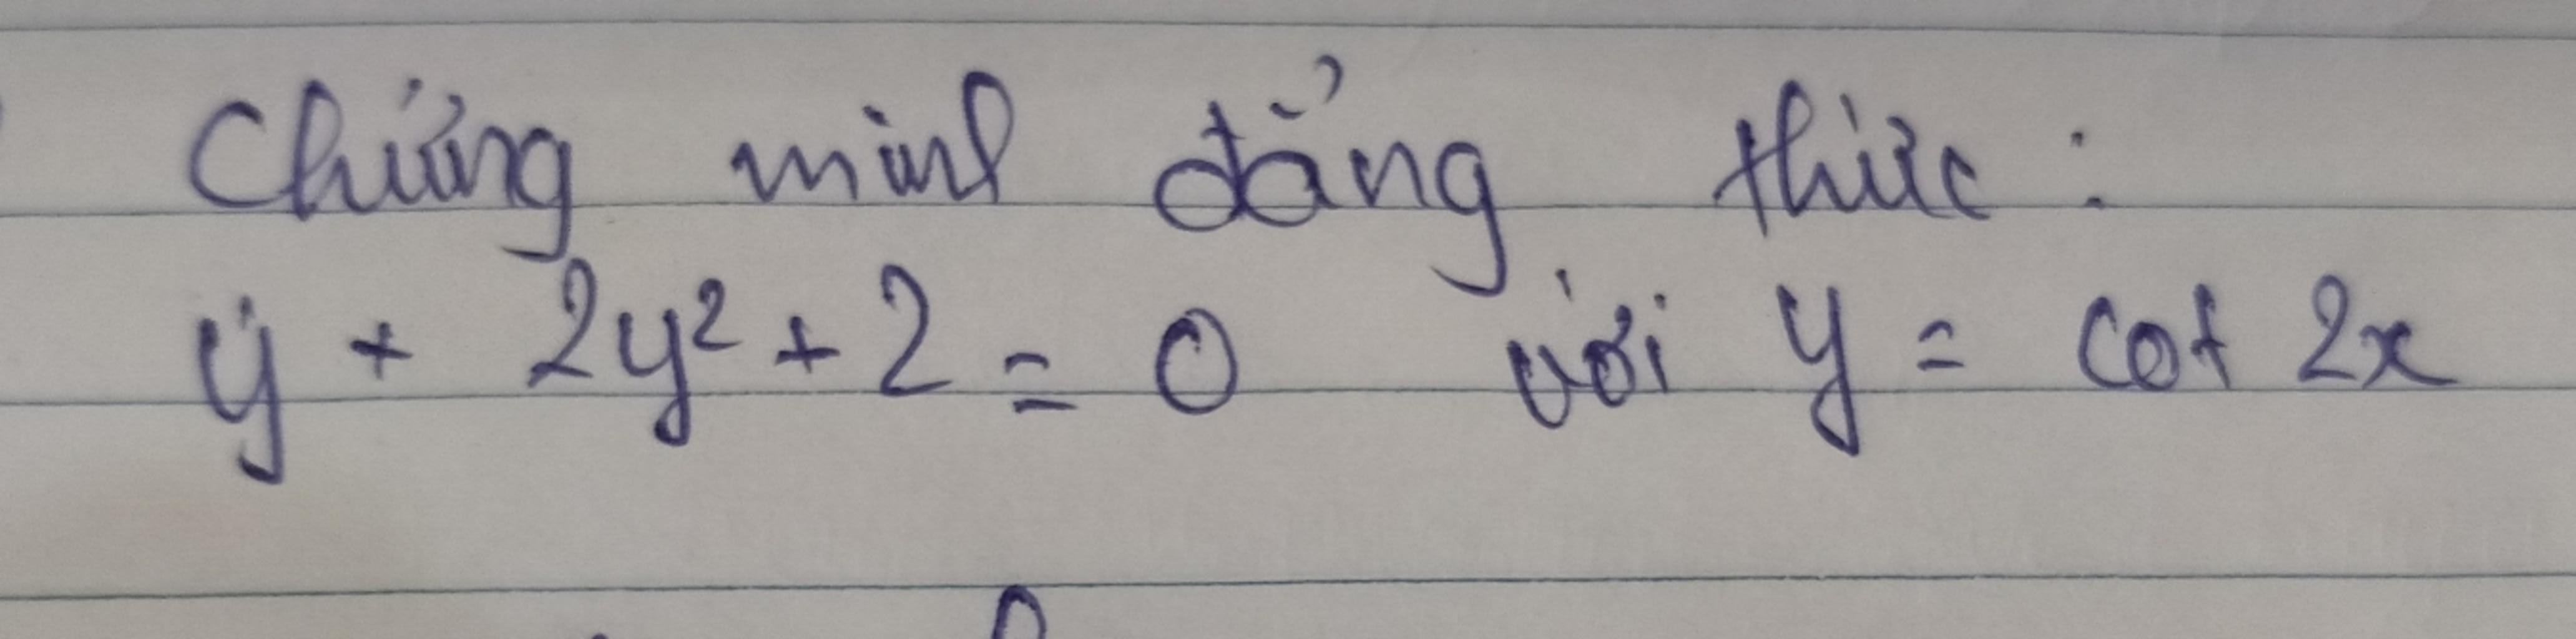 Chứng minh đẳng thức :
y' + 2y² + 2 = 0 với y = cot 2x